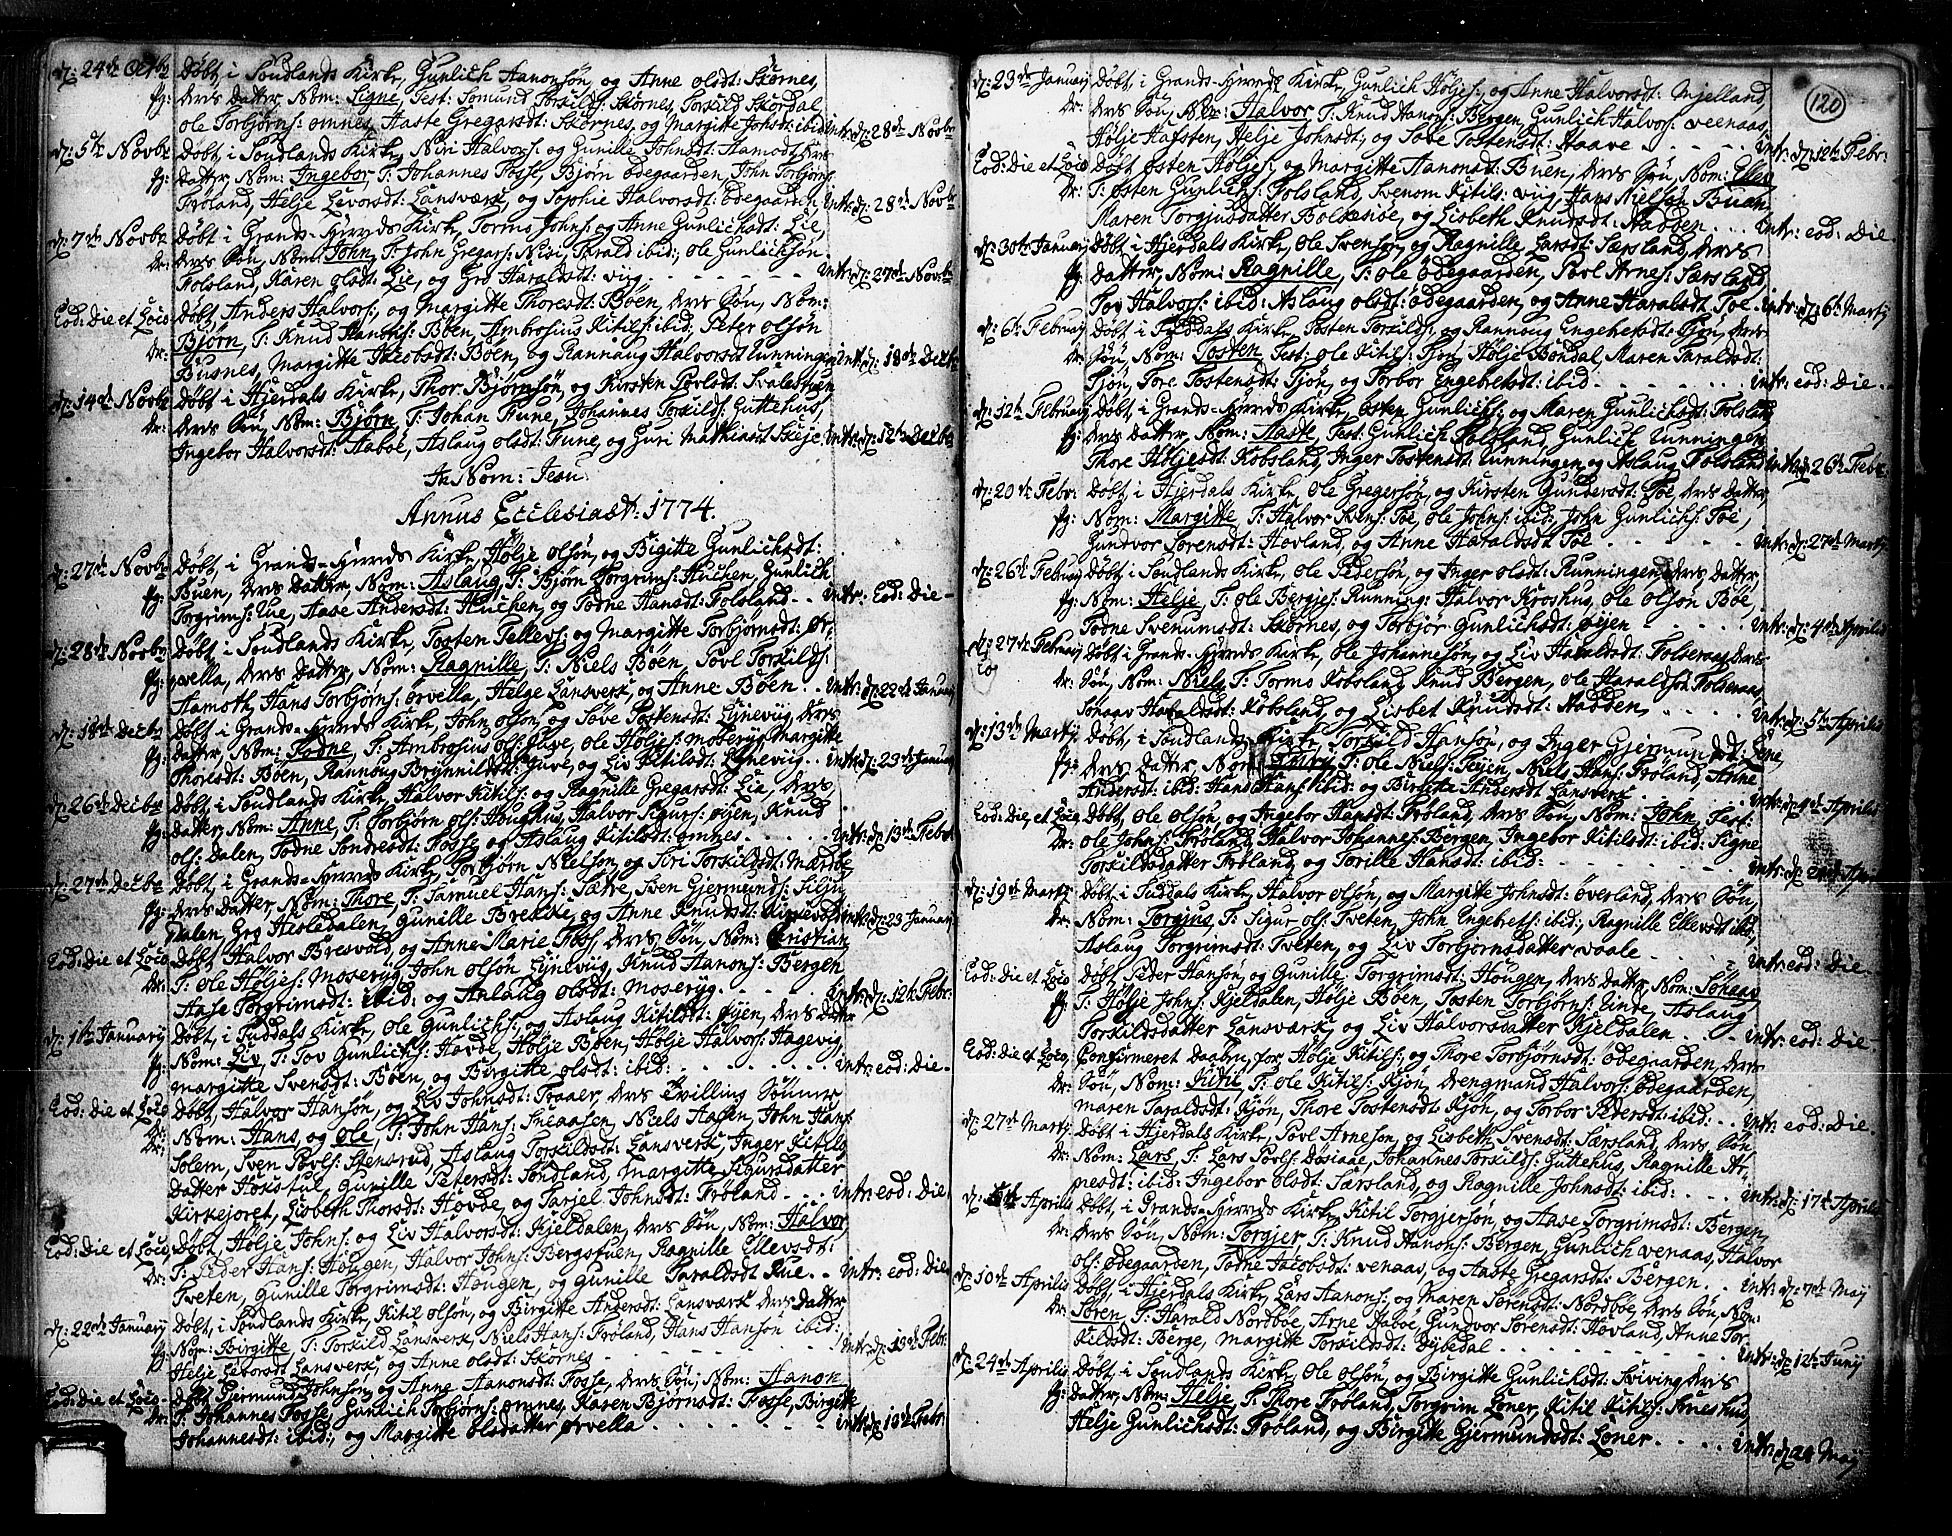 d: 24de Octbr Døbt, i Soudlands Kirke, Gunlich Aanonsøn, og Anne olsdt: Skornes,
pg: deres Datter, Nom: Signe, Test: Somund Torkilds: Skornes, Torkild Skordal,
ole Torbjørns: omnes, Aaste Gregarsdt: Skornes, og Margitte Johsdt: ibid: intr: d: 28de Novbr
d: 5te Novbr Døbt, i Soudlands Kirke, Niri Halvors: og Gunille Johnsdt: Aamodt, deres
pg: Datter, Nom: Ingebor, T: Johannes Fosse, Bjørn Ødegaarden, John Torbjørns:
Frøland, Helje Levorsdt: Lansværk, og Sophie Halvorsdt: Ødegaarden intr: d: 28de Novbr
d: 7de Novbr Døbt i Grands-Hærreds Kirke, Tormo Johns: og Anne Gunlichsdt: Lie,
Dr: deres Søn, Nom: John, T: John Gregars: Nisi, Torald ibid:, ole Gunlichsøn
Folsland, Karen olsdt: Lie, og Gro Haraldsdt: wiig intr: d: 27de Novbr
Eod: Die et Loco Døbt, Anders Halvors:, og Margitte Thoresdt: Bøen, deres Søn, Nom:
Dr: Bjørn, T: Knud Aanons: Bøen, Ambrosius Kitils: ibid; Peter olsøn
Busnes, Margitte Jacobsdt: Bøen, og Rannaug Halvorsdt Lunningen intr: d: 18de Decbr
d: 14de Novbr Døbt i Hjerdals Kirke, Thor Bjørnsøn, og Kirsten Povlsdt: Svalestuen
Dr: deres Søn, Nom: Bjørn, T: Johan Tune, Johannes Torkilds: Guttehus,
Ingebor Halvorsdt: Aaboe, Aslaug olsdt: Tune, og Guri Mathiasdt Skeje intr: d: 12te Decbr
In Nom: Jesu
Annus Ecclesiast: 1774.
d: 27de Novbr Døbt, i Grands-Hærreds Kirke, Hølje olsøn, og Bigitte Gunlichsdt:
pg: Buen, deres Datter, Nom: Aslaug, T: Bjørn Torgrims: Huchen, Gunlich
Torgrims: Lue, Aase Andersdt: Huchen, og Todne Hansdt: Folsland intr: Eod: Die
d: 28de Novbr Døbt, i Soudlands Kirke, Tosten Tellevs: og Margitte Torbjørnsdt: Ør,
pg: vella, deres Datter, Nom: Ragnille, T: Niels Bøen, Povl Torkilds:
Hamoth, Hans Torbjørns: Ørvella, Helge Lansverk, og Anne Bøen intr: d: 22de January
d: 18de Decbr Døbt i Grands-Hærreds Kirke, John olsøn, og Søve Tostensdt: Lynevüg, deres
pg: Datter, Nom: Todne, T: Ambrosius ols: Juve, ole Høljes: Moseryg, Margitte
Thoresdt: Bøen, Rannoug Brynnildsdt: Juve, og Liv Kitilsdt: Lynevüg intr: d: 23de January
d: 26de Decbr Døbt i Soudlands Kirke, Halvor Kitils: og Ragnille Gregarsdt: Lia, deres
pg: Datter, Nom: Anne, T: Torbjørn ols: Houghus, Halvor Sigurs: Øyen, Knud
ols: Dalen, Todne Sondresdt: Fosse, og Aslaug Kitilsdt: omnes intr: d: 13de Febr
d: 27de Decbr Døbt, i Grands-Hærreds Kirke, Torbjørn Nielsøn, og Siri Torkildsdt: Mærdøe
pg: deres Datter Nom: Thore, T: Samuel Hans: Sætre, Sven Gjermunds: Silju
Dalen, Gro Hesledalen, Gunille Brekke, og Anne Knudsdt: intr: d: 23 January
Eod: Die et Loco Døbt Halvor Bresvold, og Anne Marie Foss, deres Søn, Nom: Cristian,
Dr: T: ole Høljes: Moseryg, John olsøn Lynevüg, Knud Aanons: Bergen
Aase Torgrimsdt: ibid: og Anlaug olsdt: Moseryg. intr: d: 12te Febr:
d: 1te January Døbt, i Tuddals Kirke, ole Gunlichs: og Aslaug Kitilsdt: Øyen, deres Datter
pg: Nom: Liv, T: Tov Gunlichs: Hovde, Hølje Bøen, Hølje Halvors: Hagevig,
margitte Svensdt: Bøen, og Birgitte olsdt: ibid: intr: eod: Die
Eod: Die et Loco Døbt, Halvor Hansøn, og Liv Johnsdt: Traaer, deres Tvilling Sønner
Dr: Nom: Hans, og ole, T: John Hans: Sniaasen, Niels Aasen, John Hans:
Dr: Solem, Sven Povls: Stensrud, Aslaug Torkildsdt: Lansverk, Inger Kitils
Datter Høkstul, Gunille Petersdt: Soudland, Margitte Sigursdatter
Kirkejoret, Lisbeth Thorsdt: Hovde, og Tarjel Johnsdt: Frøland intr: eod: Die
Eod: Die et Loco Døbt, Hølje Johns: og Liv Halvorsdt: Kjeldalen, deres Søn, Nom: Halvor
Dr: T: Peder Hans: Hougen, Halvor Johns: Bergstuen, Ragnille Ellevsdt:
Tveten, Gunille Torgrimsdt: Hougen, og Gunille Taraldsdt Rue intr: eod: Die
d: 22de January Døbt, i Soudlands Kirke, Kitil olsøn, og Birgitte Andersdt: Lansværk deres Datter
pg: Nom: Birgitte, T: Torkild Lansverk, Niels Hans: Frøland, Hans Hansøn ibid:
Helje Levorsdt Lansverk, og Anne olsdt: Skornes intr: d: 13de Febr:
Eod: Die et Loco Døbt Gjermund Johnsøn, og Anne Aanonsdt: Fosse, deres Søn, Nom: Aanon
Dr: T: Johannes Fosse, Gunlich Torbjørns: omnes, Karen Bjørnsdt: Fosse, Birgitte
Johannesdt: ibid:, og Margitte olsdatter Ørvella intr: d: 13de Febr:
120
d: 23de January Døbt, i Grands-Hærreds Kirke, Gunlich Høljes: og Anne Halvorsdt: Mjelland
Dr: deres Søn, Nom: Halvor T: Knud Aanons: Bergen, Gunlich Halvors: veenaas,
Hølje Hafsten, Helje Johnsdt: og Søve Tostensdt: Haave intr: d: 12te Febr:
Eod: Die et Loco Døbt Østen Høljes: og Margitte Aanonsdt: Buen, deres Søn, Nom: Ellev
Dr: T: Østen Gunlichs: Folsland, Svenom Kitils: wiig, Hans Nielsøn Buan
Maren Torgjusdatter Bolkesiøe, og Lisbeth Knudsdt: Nadden intr: eod: Die
d: 30te January Døbt, i Hjerdals Kirke, ole Svensøn, og Ragnille Larsdt: Særsland, deres
pg: Datter, Nom: Ragnille, T: ole Ødegaarden, Povl Arnes: Særsland,
Tov Halvors: ibid: Aslaug olsdt: Ødegaarden, og Anne Haralsdt Toe intr: d: 6te Marty
d: 6te February Døbt, i Tuddals Kirke, Tosten Torkilds: og Rannoug Engebretsdt: Kjøn, deres
Dr: Søn, Nom: Tosten, Test: ole Kitils: Kjøn, Hølje Bondal, Maren Taraldsdt:
Kjøn, Tore Tostensdt: Kjøn, og Torbor Engebretsdt: ibid intr: eod: Die
d: 12te February Døbt, i Grands-Hærreds Kirke, Østen Gunlichs: og Maren Gunlichsdt: Folsland
pg: deres Datter, Nom: Aaste Test: Gunlich Folsland, Gunlich Lunningen
Thore Høljesdt: Kobsland, Inger Tostensdt: Lunningen, og Aslaug Folsland intr: d: 26te Febr:
d: 20de Febr: Døbt, i Hjerdals Kirke, ole Gregersøn, og Kirsten Gundersdt: Toe, deres Datter,
pg: Nom: Margitte, T: Halvor Svens: Toe, ole Johns: ibid: John Gunlichs: Toe,
Gundvor Sorensdt: Hovland, og Anne Haraldsdt Toe intr: d: 27de Marty
d: 26te February Døbt, i Soudlands Kirke, ole Pedersøn, og Inger olsdt: Runningen, deres Datter,
pg: Nom: Helje, T: ole Bergjes: Running: Halvor Kroshus, ole olsøn Bøe,
Todne Svenumsdt: Skornes, og Torbjør Gunlichsdt: Øyen intr: d: 4de Aprilis
d: 27de February Døbt, i Grands-Hærreds Kirke, ole Johannesøn, og Liv Haraldsdt: Folseraas, deres
Dr: Søn, Nom: Niels, T: Tormo Kobsland, Knud Bergen, ole Haraldsøn Folseraas
Sonaav Haraldsdt: Kobsland, og Lisbet Knudsdt: Nadden intr: d: 5te Aprilis
d: 13de Marty Døbt, i Soudlands Kirke, Torkild Hansøn, og Inger Gjermundsdt: Lone,
pg: deres Datter Nom: T: ole Niels: Tejen, Niels Hans: Frøland, Anne
Andersdt: ibid: Hans Hans: ibid: og Birgitte Andersdt Lansverk intr: d: 4de Aprilis
Eod: Die, et Loco Døbt, ole olsøn, og Ingebor Hansdt: Frøland, deres Søn, Nom: John, Test:
Dr: ole Johns: Frøland, Halvor Johannes: Bergen, Ingebor Kitilsdt: ibid: Signe
Torkildsdatter Frøland, og Torille Hansdt: ibid: intr: d:
d: 19de Marty Døbt, i Tuddals Kirke, Halvor olsøn, og Margitte Johnsdt: Øverland, deres Søn,
Dr: Nom: Torgjus, T: Sigur ols: Tveten, John Engebrets: ibid:, Ragnille Ellevsdt ibid,
Aslaug Torgrimsdt: Tveten, og Liv Torbjornsdatter vaale intr: eod: Die
Eod: Die et Loco Døbt, Peder Hansøn, og Gunille Torgrimsdt: Hougen, deres Datter, Nom: Sønaav
pg: T: Hølje Johns: Kjeldalen, Hølje Bøen, Tosten Torbjørns: Linde, Aslaug
Torkildsdatter Lansværk, og Liv Halvorsdatter Kjeldalen intr: eod: Die
Eod: Die et Loco, Confirmeret Daaben, for Hølje Kitils: og Thore Torbjørnsdt: Ødegaarden, deres
Dr: Søn, Nom: Kitil, T: ole Kitils: Kjøn, Drengmand Halvors: Ødegaarden,
maren Taraldsdt: Kjøn, Thore Tostensdt: Kjøn, og Torbor Pedersdt: ibid: intr: eod: Die
d: 27de Marty Døbt i Hjerdals Kirke, Povl Arnesøn, og Lisbeth Svensdt: Særsland, deres Søn
Dr: Nom: Lars, T: Lars Povls: Døsiaae, Johannes Torkilds: Guttehus, Ragnille Ar,
nesdt: ibid: Ingebor olsdt: Særsland, og Ragnille Johnsdt: ibid: intr: d: 17de Aprilis
d: 5te Aprilis Døbt, i Grands-Hærreds Kirke, Kitil Torgjersøn, og Aase Torgrimsdt: Bergen,
Dr: deres Søn, Nom: Torgjer, T: Knud Aanons: Bergen, Gunlich venaas, Halvor
ols: Ødegaarden, Todne Jacobsdt: venaas, og Aaste Gregarsdt: Bergen intr: d: 7de Maij
d: 10de Aprilis Døbt, i Hjerdals Kirke, Lars Aanons: og Maren Sørensdt: Nordbøe, deres Søn, Nom:
Dr: Søren, T: Harald Nordbøe, Arne Aabøe, Gundvor Sørensdt: Hovland, Anne Tor
Kildsdt: Berge, Margitte Torkildsdt: Dybedal intr: d: 12te Junij
d: 24de Aprilis Døbt, i Soudlands Kirke, ole olsøn, og Birgitte Gunlichsdt: Sviving, deres
pg: Datter, Nom: Helje, T: Thore Frøland, Torgrim Loner, Kitil Kitils: Fineshus,
Helje Gunlichsdt: Frøland, og Birgitte Gjermundsdt: Loner intr: d: 22 Maij